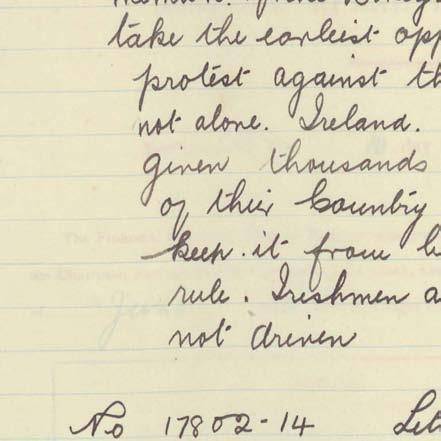 take the earliest opp
protest against th
not alone. Ireland.
given thousands
of their Country
keep it from b
rule. Irishmen a
not driven
No 17802-14 Let